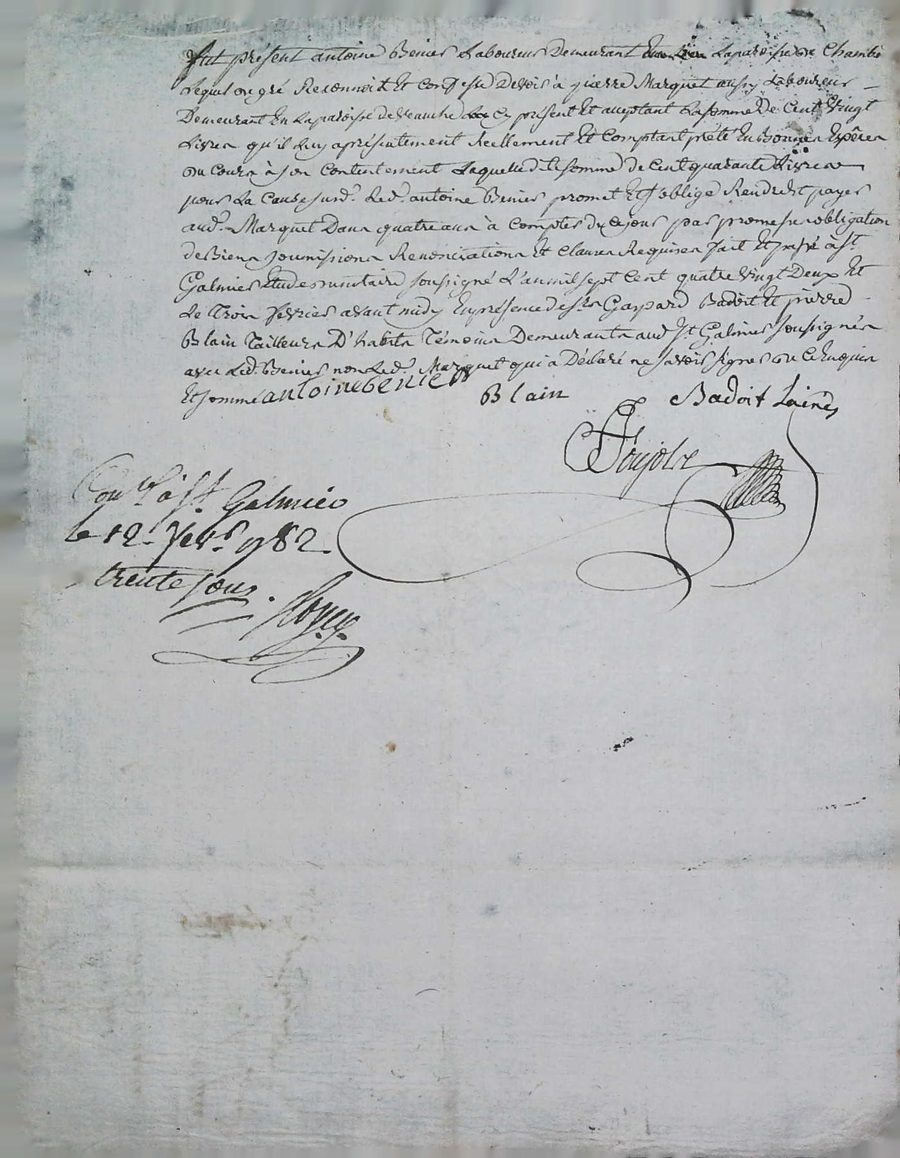 fut présent antoine Benier Laboureur Demeurant En Laparoisse de Chambe
Lequel de gré Reconnoit Et Confesse Devoir à pierre Marquet aussy Laboureur
Demeurant En Laparoisse de Veauche Cy présent Et aceptant La somme De Cent Vingt
Livres qu'il luy a présentement Reellement Et Comptant prété En Bonnes Espèces
du Cours à son Contentement Laquelle ditte somme de Cent quarante Livres
pour La Cause susd. Led. antoine Benier promet Et s'oblige Rendre Et payer
aud. Marquet Dans quatre ans à Compter du jour par promesse obligation
de Biens soumissions Renonciations Et Clauses Requises fait Et passé à St.
Galmier Etude du notaire soussigné L'an mil sept Cent quatre Vingt Deux Et
Le Trois fevrier avant midy En présence des srs Gaspard Badoit Et pierre
Blain Tailleurs D'habits Témoins Demeurants aud. St. Galmier soussignés
avec Led. Benier non Led. Marquet qui a Déclaré ne savoir signer de ce Enquis
Et sommé antoine benier
Blain Badoit Lainé
Conlé à St. Galmier
le 12 fevr. 1782
trente sous.